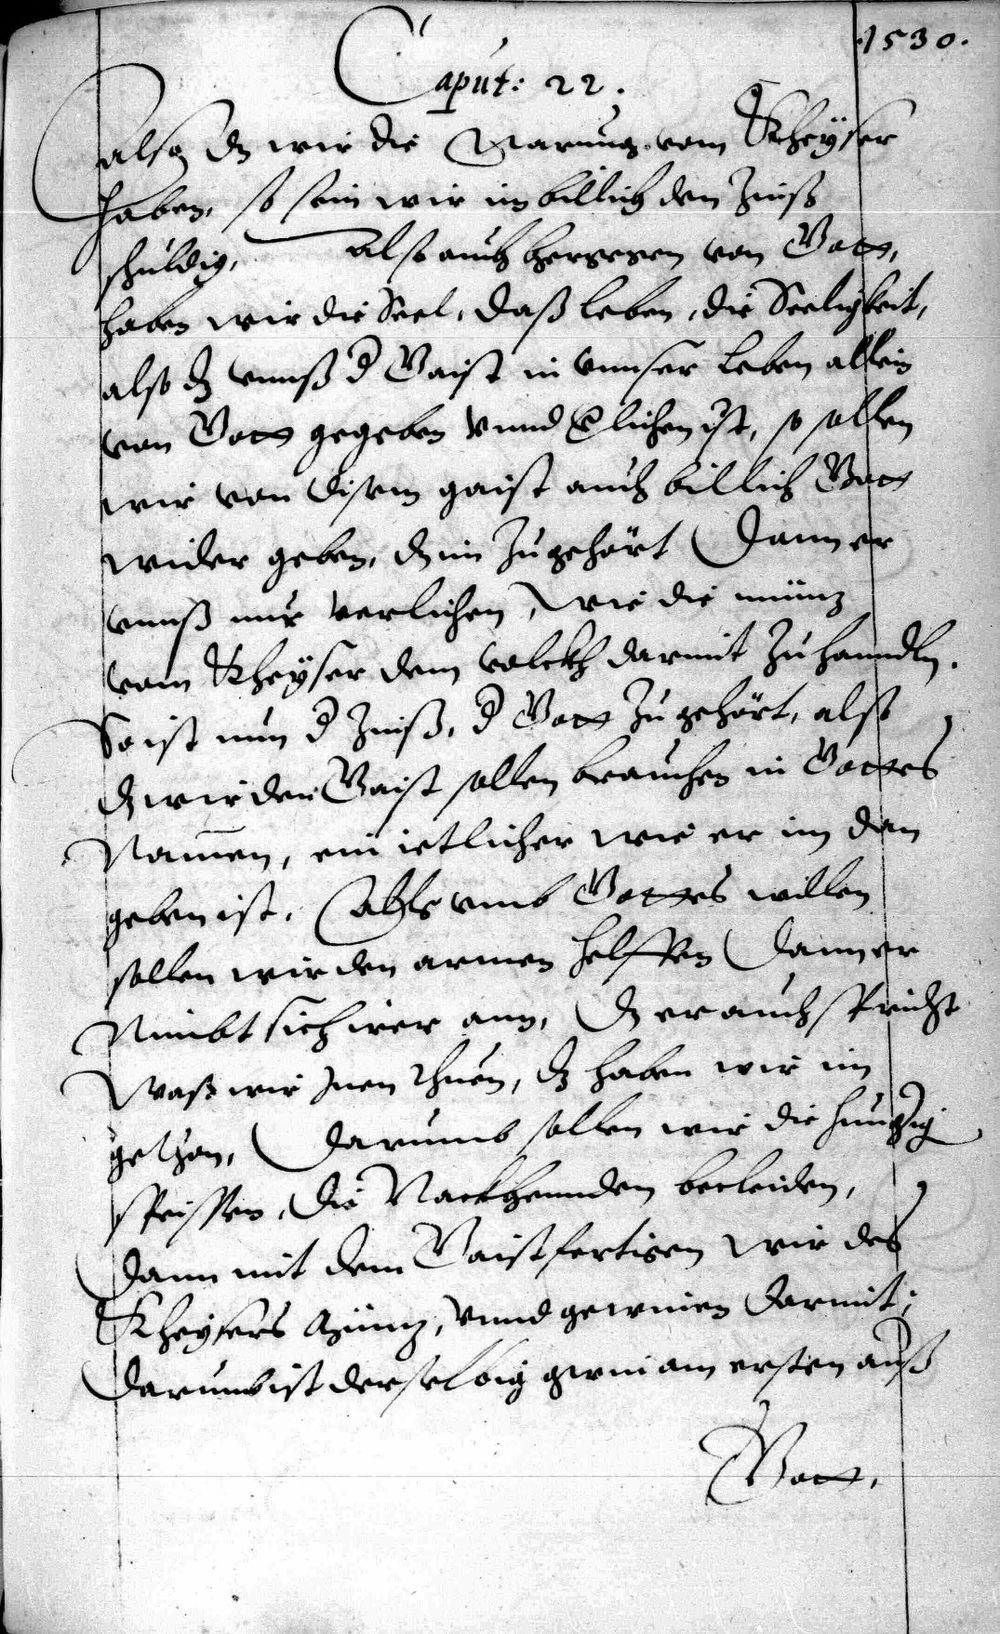 1530.
Caput: 22.
also dz wir die Narung vom Kheÿser
haben, so sein wir im billich den Zinß
schuldig, also auch hergegen von Gott,
haben wir die Seel, daß leben, die Seeligkeit,
also dz vnnß d Gaist in vnnser leben allein
von Gott gegeben vnnd verlichen ist, so sollen
wir von disem gaist auch billich Gott
wider geben, dz im Zugehört Dann er
vnnß nur verlichen, wie die münz
vom Kheÿser dem volckh darmit Zuhanndln.
So ist nun d Zinß, d Gott Zugehört, alß
dz wir den Gaist sollen brauchen in Gottes
Namen, ein ietlicher wie er im dan
geben ist. Alls vmb Gottes willen
sollen wir den armen helffen Dann er
Nimbt sich irer ann, dz er auch spricht
Waß wir Inen thuen, dz haben wir im
gethon, Darumb sollen wir die hungrig
speissen, die Nackhennden becleiden,
Dann mit dem Gaist fertigen wir des
Kheÿsers Münz, vnnd gewinen darmit;
Darumb ist derselbig gwin am ersten auß
Gott,